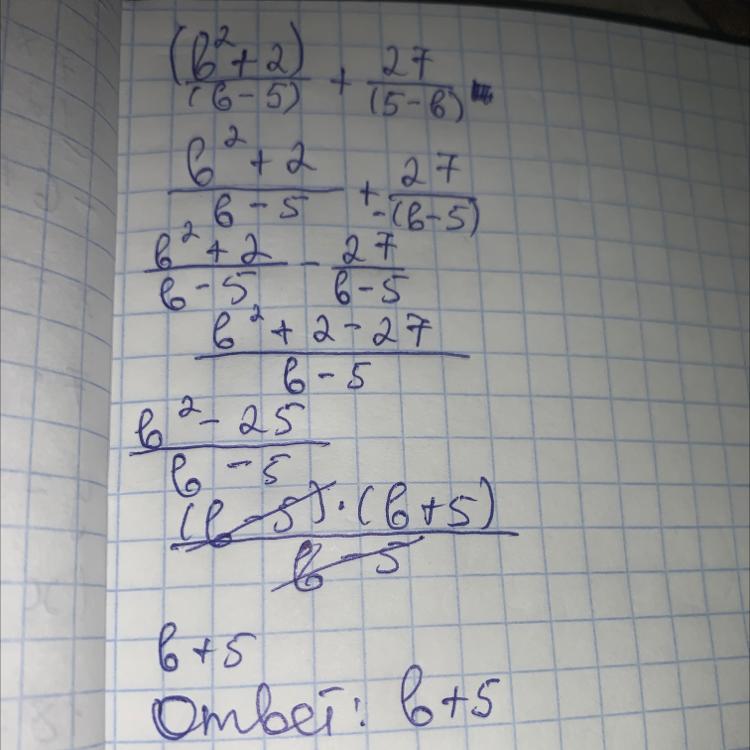 (b²+2)/(b-5) + 27/(5-b)
b²+2/b-5 + 27/-(b-5)
b²+2/b-5 - 27/b-5
b²+2-27/b-5
b²-25/b-5
(b-5)·(b+5)/b-5
b+5
Ответ: b+5